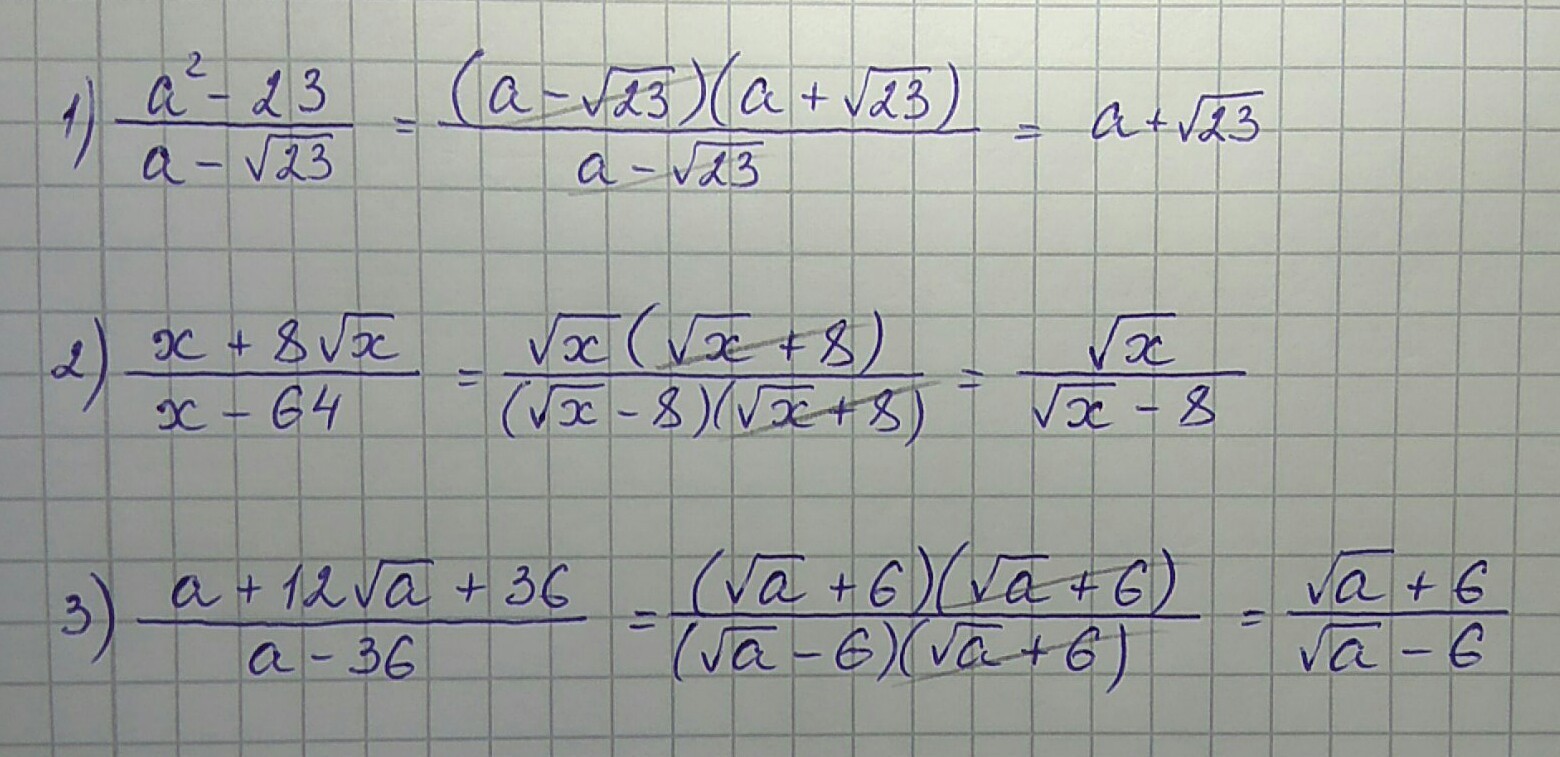 1) (a² - 23)/(a - √23) = ((a - √23)(a + √23))/(a - √23) = a + √23
2) (x + 8√x)/(x - 64) = (√x(√x + 8))/((√x - 8)(√x + 8)) = √x/(√x - 8)
3) (a + 12√a + 36)/(a - 36) = ((√a + 6)(√a + 6))/((√a - 6)(√a + 6)) = (√a + 6)/(√a - 6)